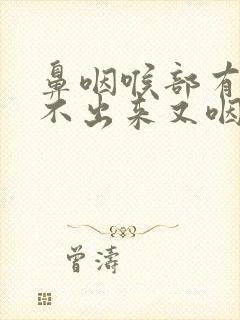 鼻咽喉部有
不出来又咽
曾濤